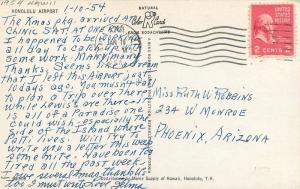 1954 Hawaii
HONOLULU AIRPORT
1-10-54
NATURAL
Color Card
FROM KODACHROME
The Xmas pkg. arrived at
CHINIC STAT. AT ONE P.M.
I happened to be working
all day to catch up with
some work. Many, many
Thanks. Seems like a dream
that I left this Airport just
10 days ago. You must all
to plan a Trip over there
while Lewis's are there - it
is all of a Paradise one
could wish - especially the
side of the Island where
Patti lives. Will try to
write you a letter this week
some nite. Have been too
tired all the last week.
I owe several Xmas thank u's
too I must write. Love Selma
2 CENTS 2
Miss Ruth V. Robbins
234 W Monroe
Phoenix, Arizona
Distributed by Movie Supply of Hawaii, Honolulu, T.H.